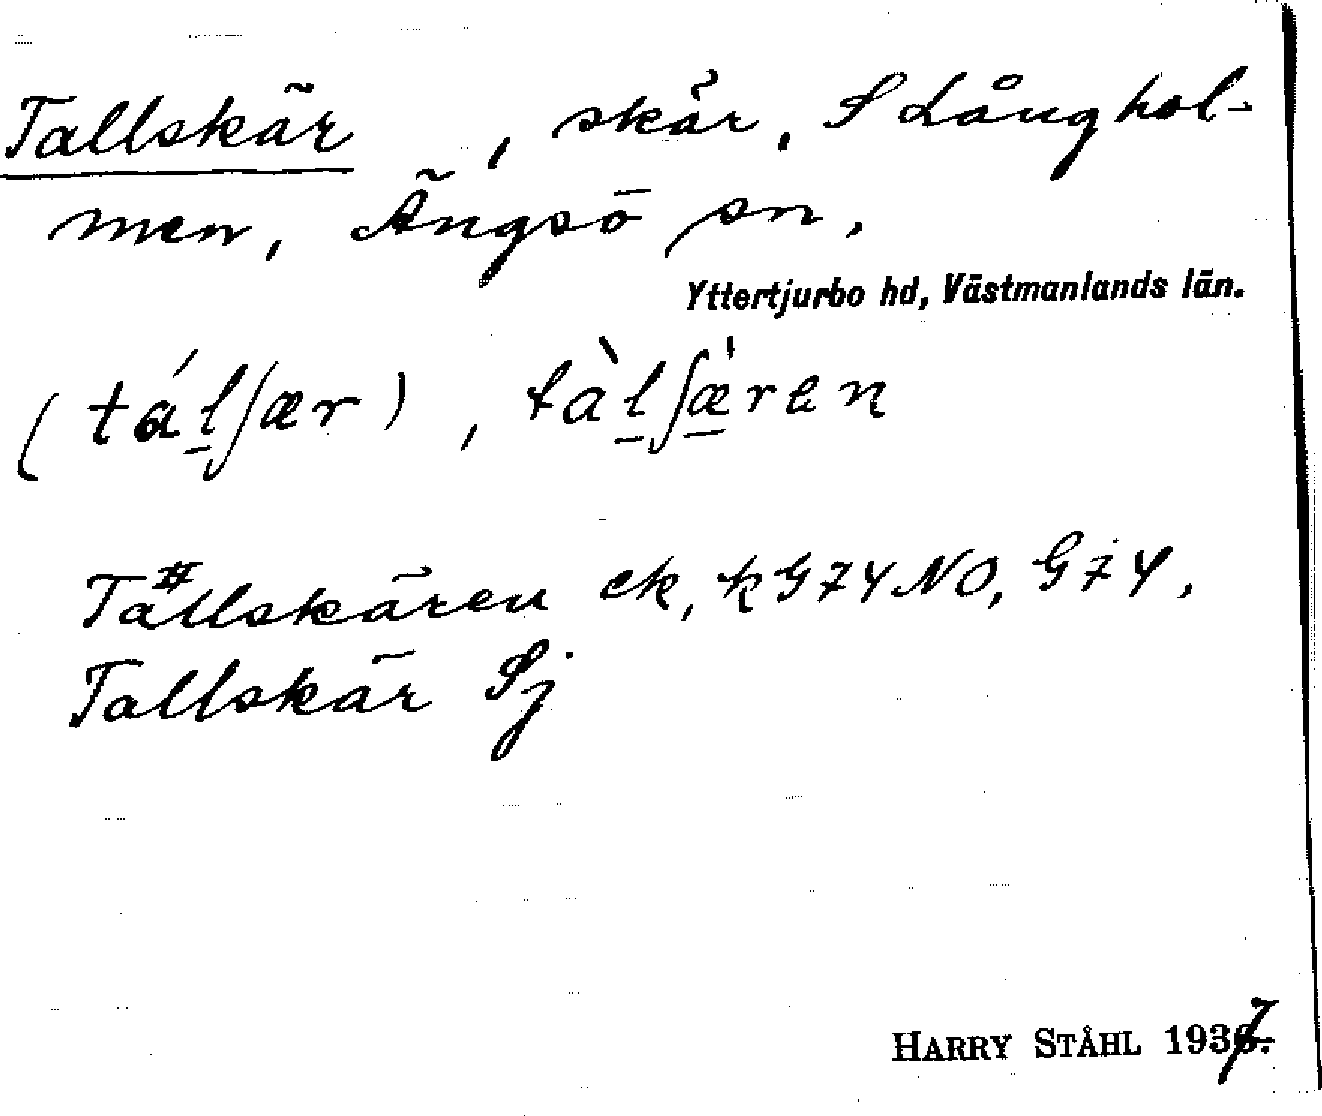 Tallskär, skär, S Långhol-
men, Ängsö sn.
Yttertjurbo hd, Västmanlands län.
(tálʃær), tàlʃæ̀ren
Tallskären ek, kG74NO, G74,
Tallskär Sj
HARRY STÅHL 1937.